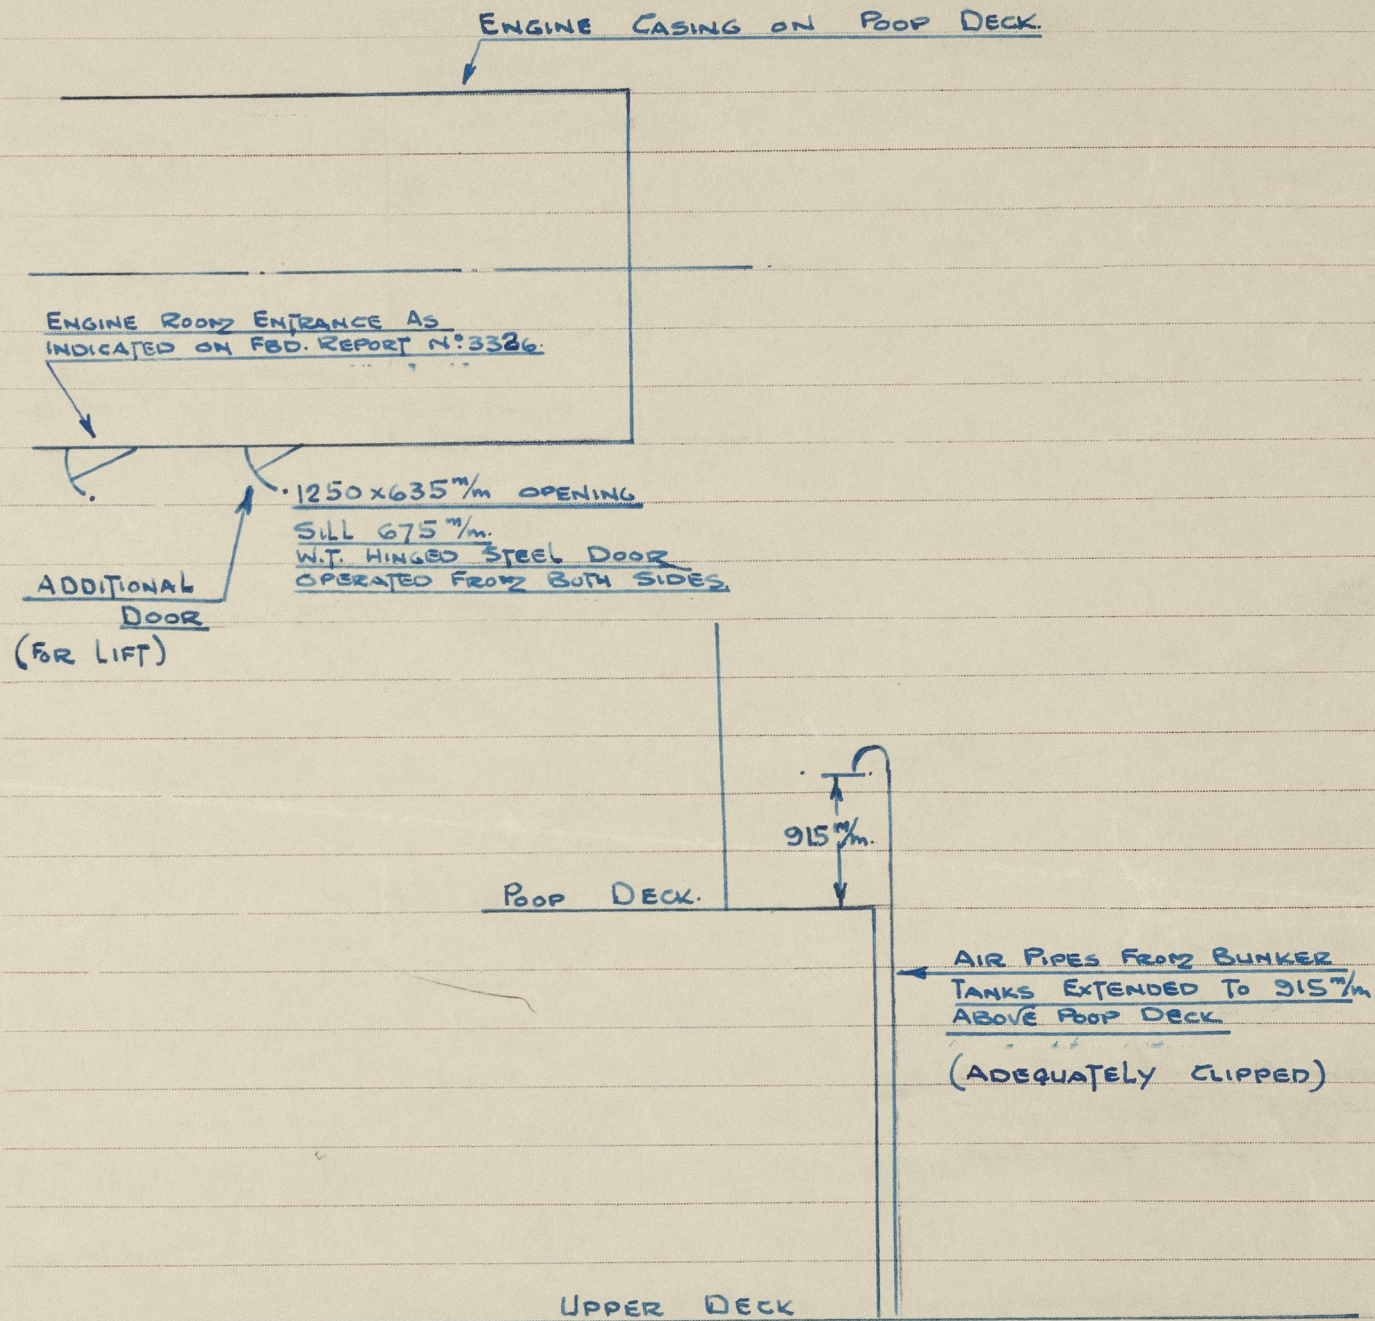 ENGINE CASING ON POOP DECK.
ENGINE ROOM ENTRANCE AS
INDICATED ON FBD. REPORT Nº 3326.
1250 x 635 m/m OPENING
SILL 675 m/m.
W.T. HINGED STEEL DOOR
OPERATED FROM BOTH SIDES.
ADDITIONAL
DOOR
(FOR LIFT)
915 m/m.
POOP DECK.
AIR PIPES FROM BUNKER
TANKS EXTENDED TO 915 m/m
ABOVE POOP DECK
(ADEQUATELY CLIPPED)
UPPER DECK